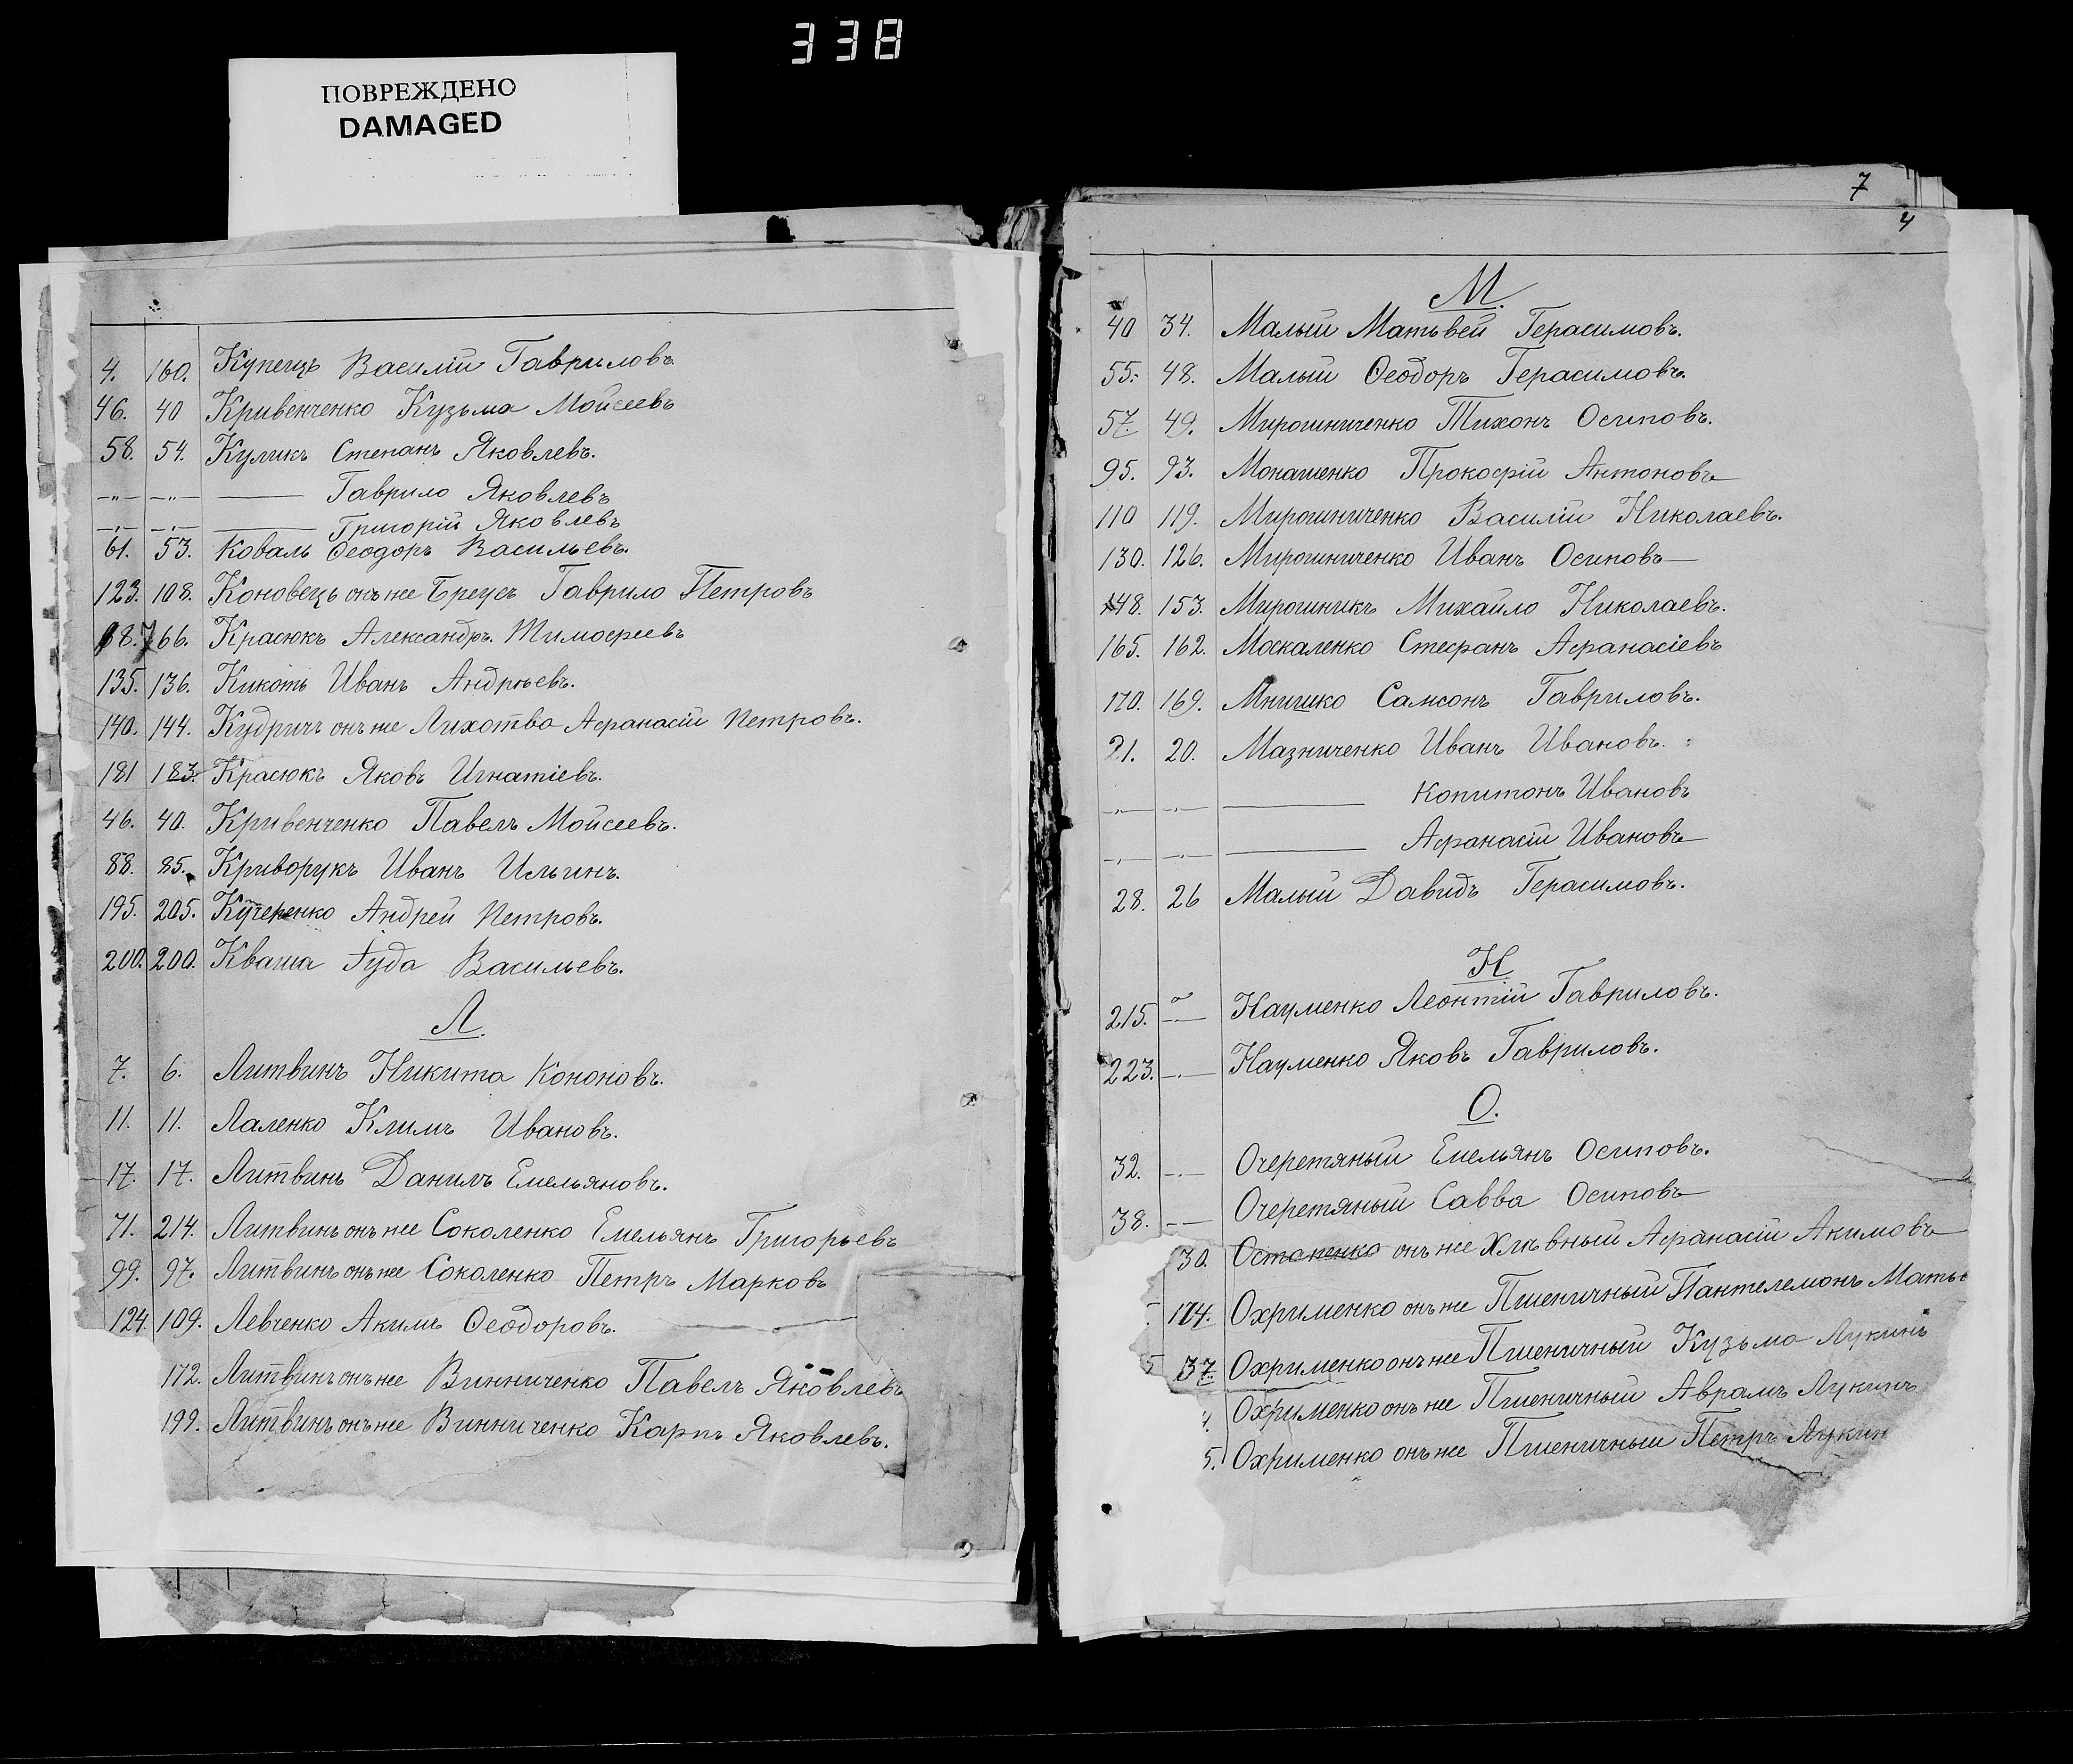 338
ПОВРЕЖДЕНО
DAMAGED
4. 160. Купецъ Василій Гавриловъ.
46. 40 Кривенченко Кузьма Мойсеевъ
58. 54. Куликъ Степанъ Яковлевъ.
—„— —„— —— Гаврило Яковлевъ
—„— —„— —— Григорій Яковлевъ
61. 53. Коваль Ѳеодоръ Васильевъ.
123. 108. Коновецъ онъ же Бреусъ Гаврило Петровъ
68. 766. Красюкъ Александръ Тимофеевъ
135. 136. Кикоть Иванъ Андрѣевъ.
140. 144. Кудричъ онъ же Лихотва Афанасій Петровъ.
181 183. Красюкъ Яковъ Игнатіевъ.
46. 40. Кривенченко Павелъ Мойсеевъ.
88. 85. Криворукъ Иванъ Ильинъ.
195. 205. Кучеренко Андрей Петровъ.
200. 200. Кваша Іуда Васильевъ.
Л.
7. 6. Литвинъ Никита Кононовъ.
11. 11. Лаленко Климъ Ивановъ.
17. 17. Литвинъ Данилъ Емельяновъ.
71. 214. Литвинъ онъ же Соколенко Емельянъ Григорьевъ
99. 97. Литвинъ онъ же Соколенко Петръ Марковъ
124 109. Левченко Акимъ Ѳеодоровъ.
172. Литвинъ онъ же Винниченко Павелъ Яковлевъ
199. Литвинъ онъ же Винниченко Карпъ Яковлевъ.
7
4
М.
40 34. Малый Матьвей Герасимовъ.
55. 48. Малый Ѳеодоръ Герасимовъ.
57. 49. Мирошниченко Тихонъ Осиповъ.
95. 93. Монашенко Прокофій Антоновъ
110 119. Мирошниченко Василій Николаевъ.
130. 126. Мирошниченко Иванъ Осиповъ
148. 153. Мирошникъ Михайло Николаевъ.
165. 162. Москаленко Стефанъ Афанасіевъ
170. 169. Мнишко Самсонъ Гавриловъ.
21. 20. Мазниченко Иванъ Ивановъ.
—„— —„— —— Копитонъ Ивановъ
—„— —„— —— Афанасій Ивановъ
28. 26 Малый Давидъ Герасимовъ.
Н
215. —„— Науменко Леонтій Гавриловъ.
223. —„— Науменко Яковъ Гавриловъ.
О.
32. —„— Очеретяный Емельянъ Осиповъ.
38. —— Очеретяный Савва Осиповъ
30. Остапенко онъ же Хлѣвный Афанасій Акимовъ
174. Охрименко онъ же Пшеничный Пантелемонъ Матье
5 37. Охрименко онъ же Пшеничный Кузьма Лукинъ
4. Охрименко онъ же Пшеничный Аврамъ Лукинъ
5. Охрименко онъ же Пшеничный Петръ Лукин